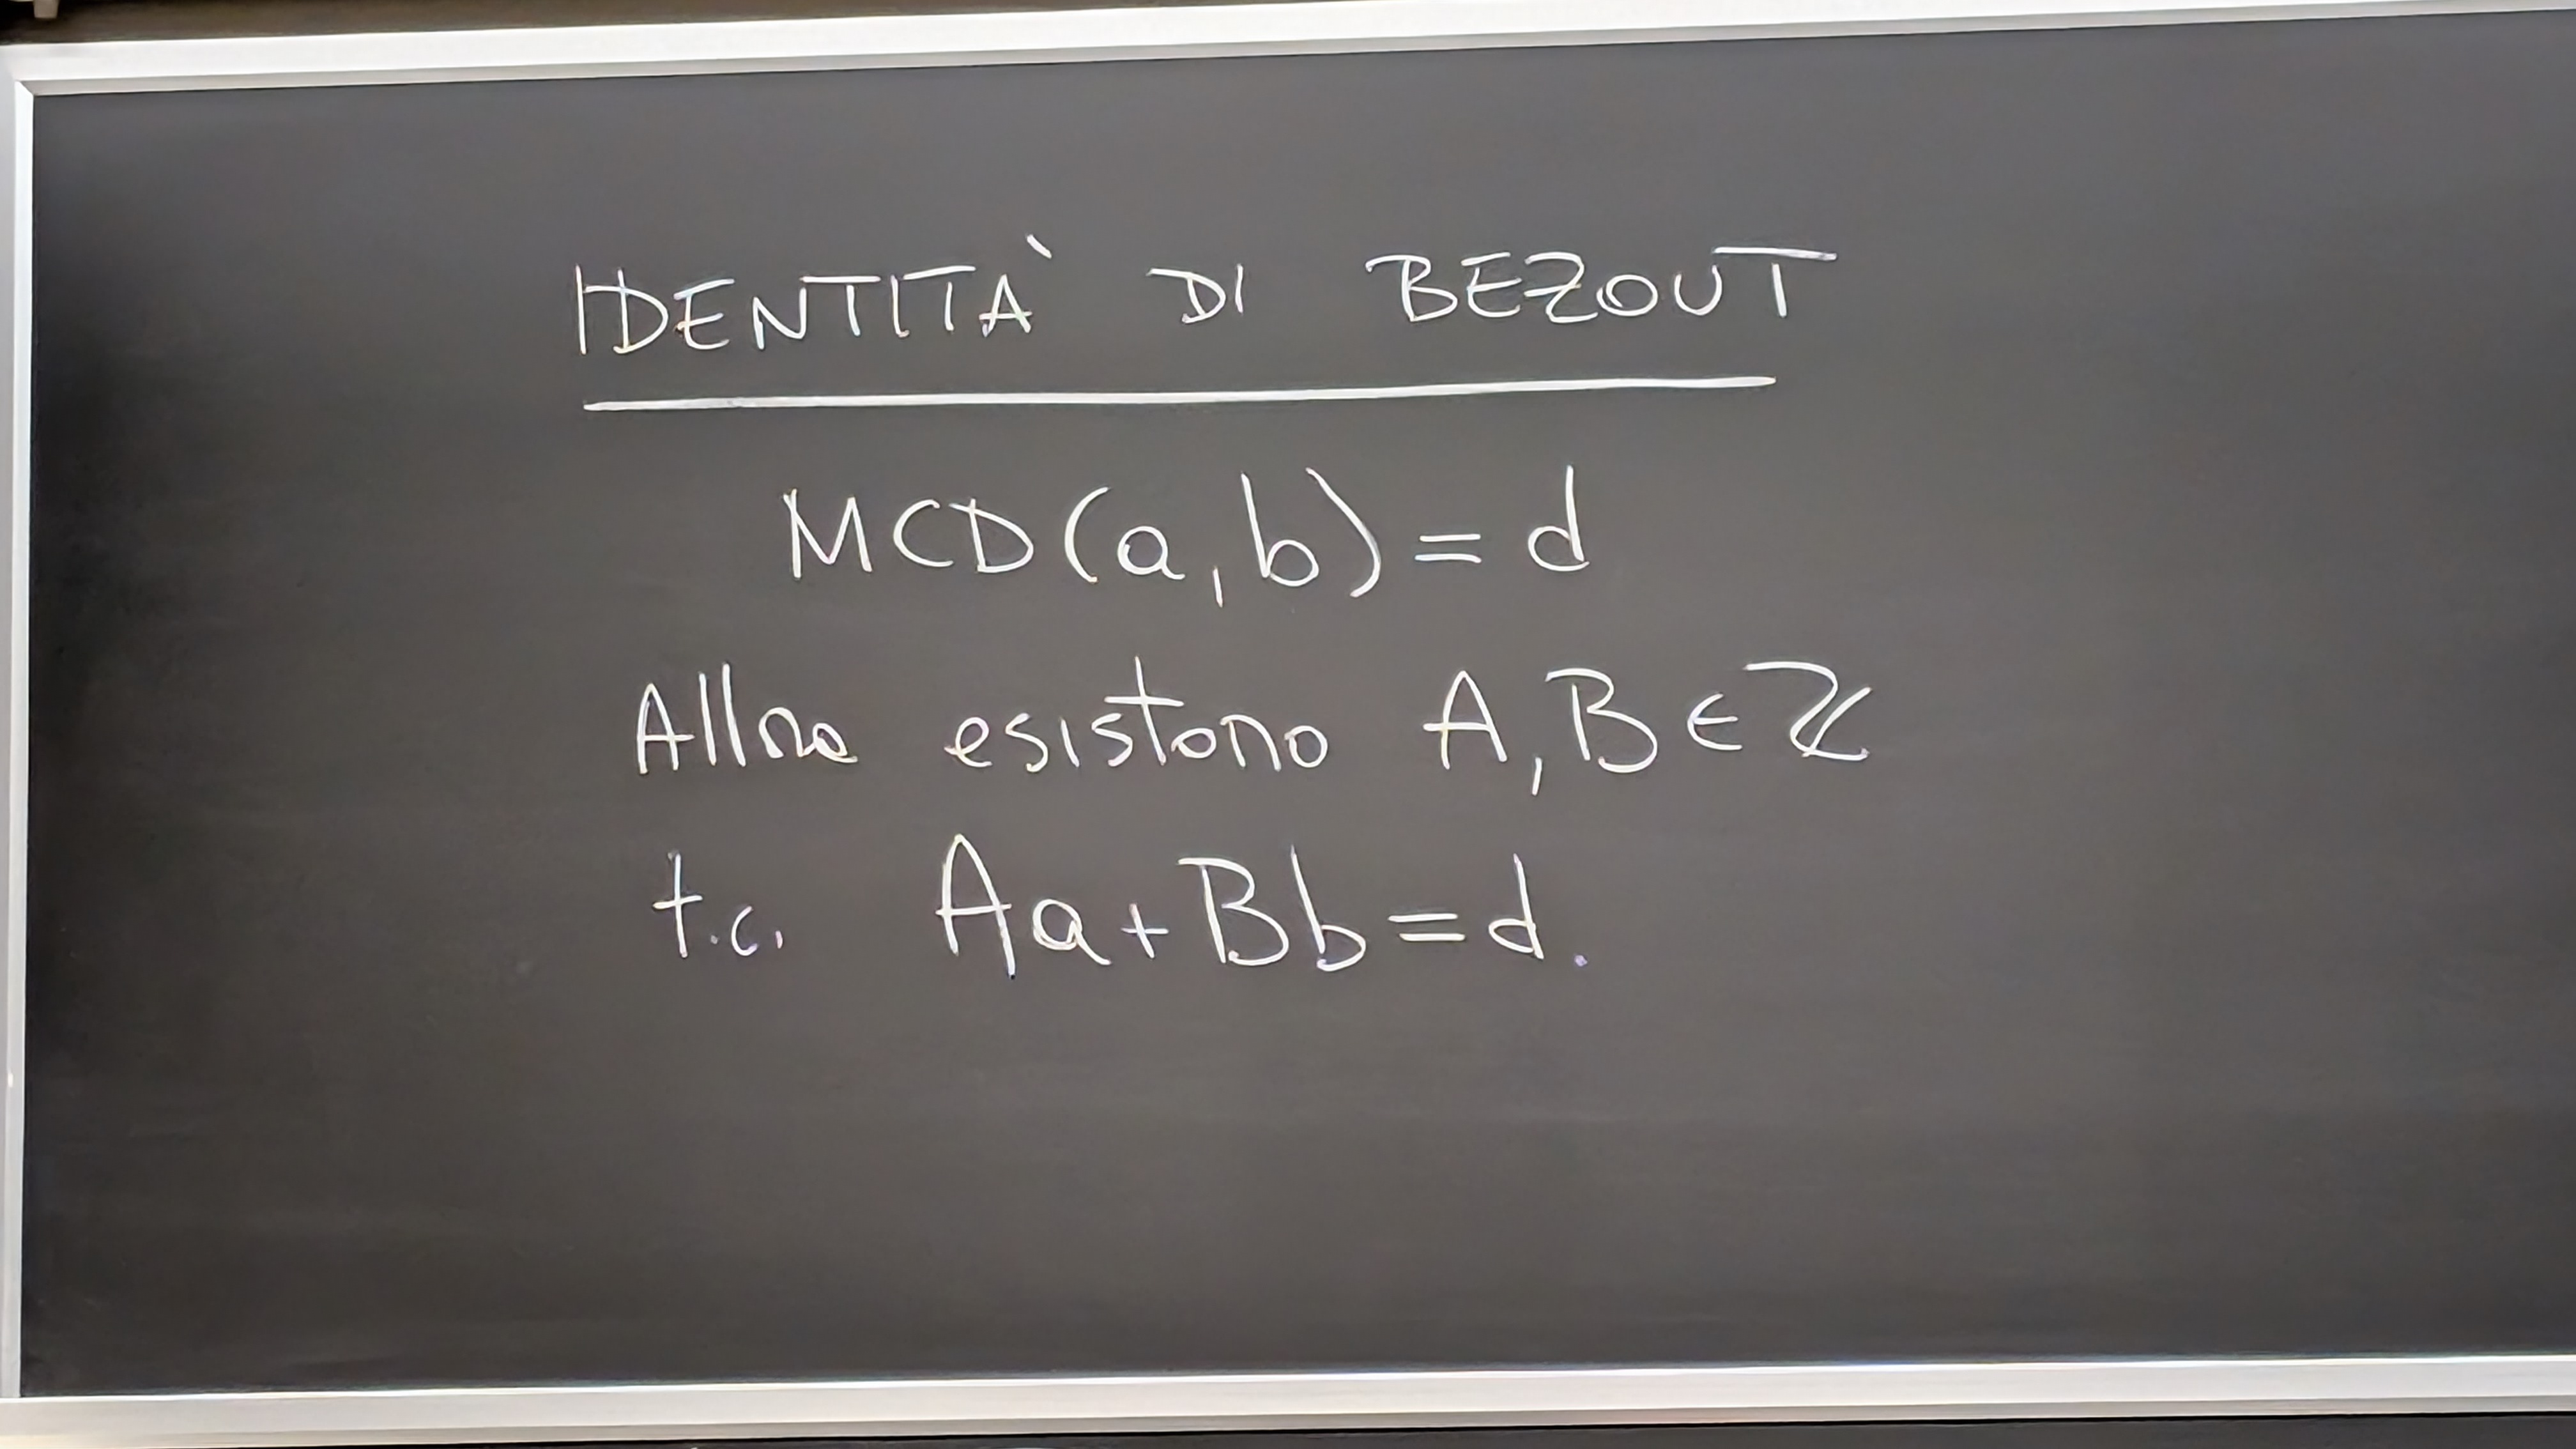 IDENTITÀ DI BEZOUT
MCD(a,b)=d
Allora esistono A,B∈ℤ
t.c. Aa+Bb=d.